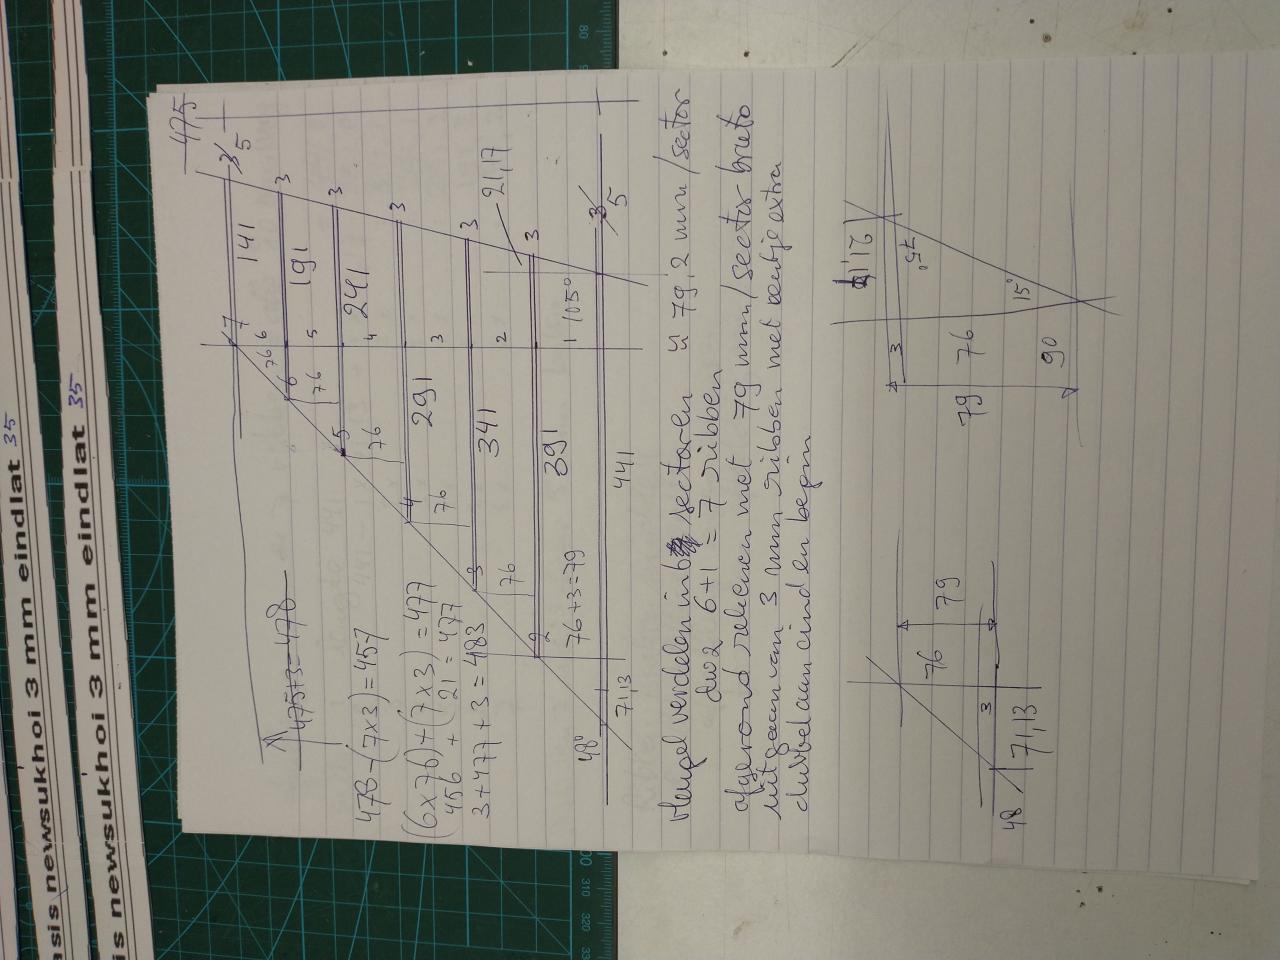 asis newsukhoi 3 mm eindlat 35
is newsukhoi 3 mm eindlat 35
475
475+3=478
478-(7x3)=457
(6x76)+(7x3)=477
456 + 21 = 477
3+477+3=483
7
141
3
5
6
76
6
191
3
76
5
5
241
3
76
4
4
291
3
76
3
3
341
3
21,17
76
2
2
391
3
76+3=79
1
105°
48°
71,13
441
3
5
vleugel verdelen in 6 sectoren 79,2 mm/sector
dus 6+1 = 7 ribben
afgerond rekenen met 79 mm/sector bruto
uitgaan van 3 mm ribben met beetje extra
dubbel aan eind en begin
48
71,13
3
76
79
79
3
76
90
21,17
75°
15°